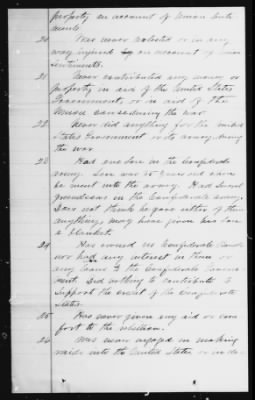 property on account of Union senti
ments.
20 Was never molested or in any
way injured on account of Union
sentiments.
21 Never contributed any money or
property in aid of the United States
Government, or in aid of the
Union cause during the war
22 Never did anything for the United
States Government or its army during
the war.
23 Had one son in the Confederate
army. Son was 25 years old when
he went into the army. Had several
grandsons in the Confederate army.
Does not think he gave either of them
anything, may have given his son
a blanket.
24 Has owned no Confederate bonds
nor had any interest in them or
any loans to the Confederate Govern
ment. Did nothing to contribute to
support the credit of the Confederate
States.
25 Has never given any aid or com
fort to the rebellion.
26 Was never engaged in making
raids into the United States or in de